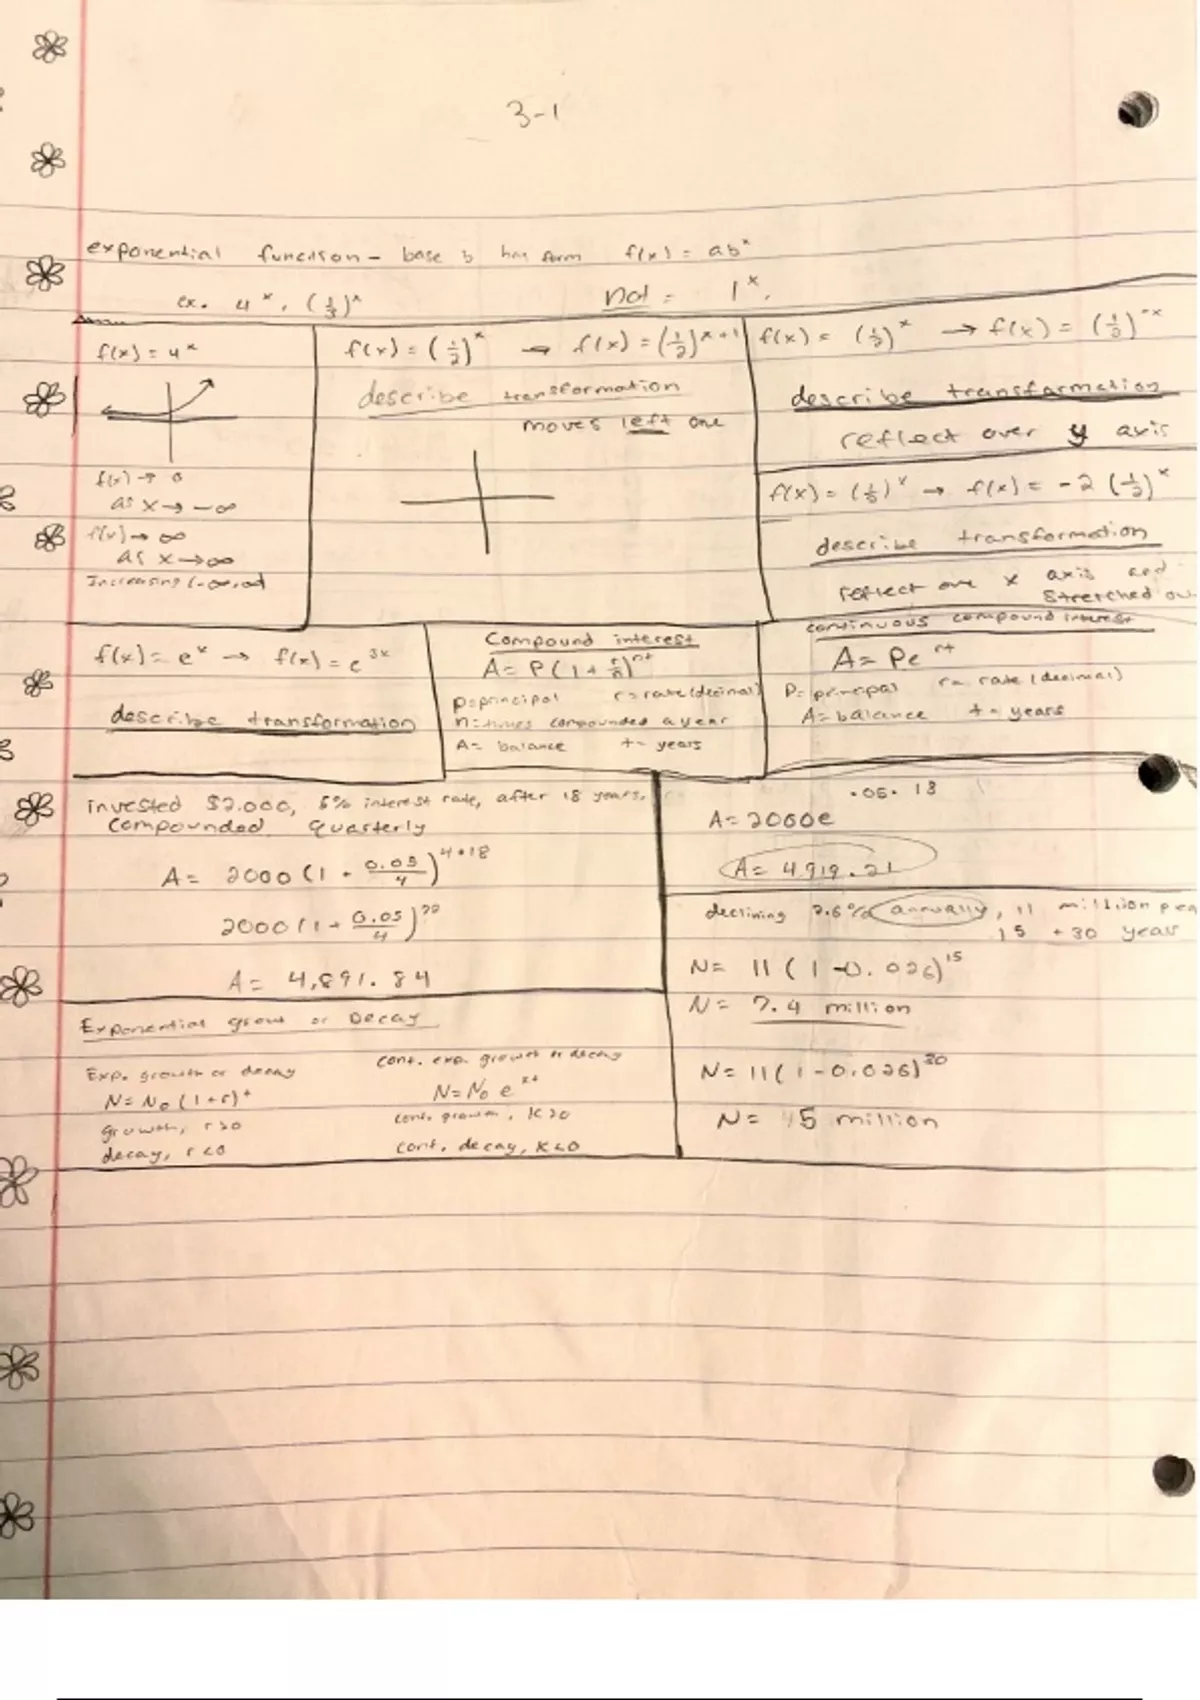 3-1
exponential function - base b has form f(x) = ab^x
ex. 4^x, (1/3)^x not = 1^x.
f(x) = 4^x
f(x) → 0
as x → -∞
f(x) → ∞
as x → ∞
Increasing (-∞,∞)
f(x) = (1/2)^x → f(x) = (1/2)^x+1
describe transformation
moves left one
f(x) = (1/2)^x → f(x) = (1/2)^-x
describe transformation
reflect over y axis
f(x) = (1/2)^x → f(x) = -2 (1/2)^x
describe transformation
reflect over x axis and
stretched
f(x) = e^x → f(x) = e^3x
describe transformation
Compound interest
A = P(1 + r/n)^nt
P = principal r = rate (decimal)
n = times compounded a year
A = balance t = years
continuous compound interest
A = Pe^rt
P = principal r = rate (decimal)
A = balance t = years
invested $2,000, 5% interest rate, after 18 years,
compounded quarterly
A = 2000 (1 + 0.05/4)^4•18
2000 (1 + 0.05/4)^72
A = 4,891.84
A = 2000e^.05•18
A = 4,919.21
declining 2.6% annually, 11 million
15 + 30 years
N = 11 (1 - 0.026)^15
N = 7.4 million
N = 11 (1 - 0.026)^30
N = 5 million
Exponential or Decay
Exp. growth or decay
N = N₀ (1+r)^t
growth, r>0
decay, r<0
cont. exp. growth or decay
N = N₀ e^kt
cont. growth, k>0
cont. decay, k<0